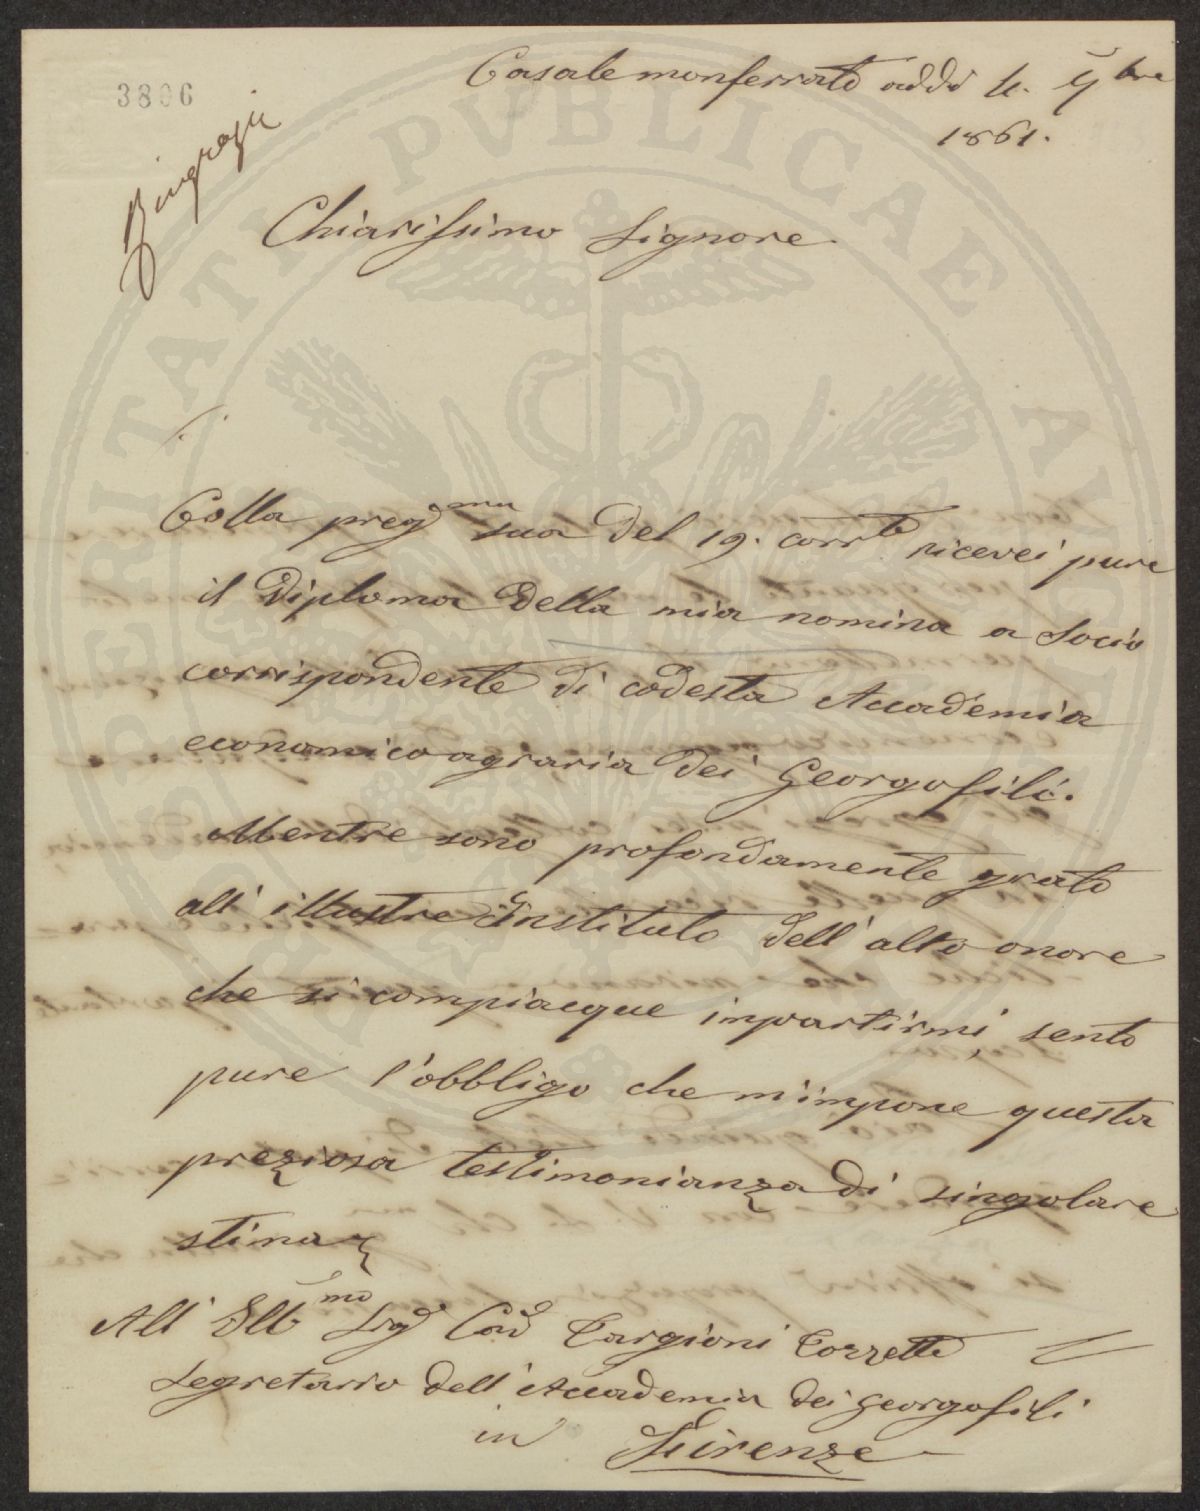 3806
Casale monferrato addì 9bre
1861.
Ringrazia
Chiarissimo Signore
Colla preg.ma sua del 19. corrte ricevei pure
il Diploma della mia nomina a Socio
corrispondente di codesta Accademia
economico agraria dei Georgofili.
Mentre sono profondamente grato
all' illustre Instituto dell' alto onore
che si compiacque impartirmi, sento
pure l'obbligo che m'impone questa
preziosa testimonianza di singolare
stima
All' Ill.mo Sig.r Cav. Targioni Tozzetti
Segretario dell' Accademia dei Georgofili
in Firenze
PROSPERITATI PVBLICAE AVGENDAE